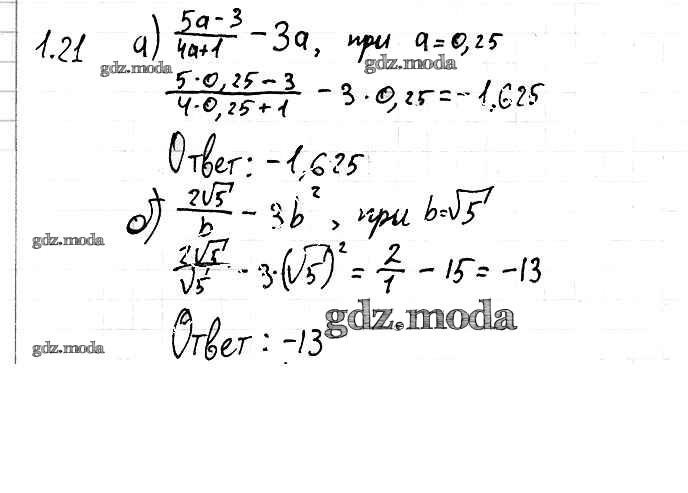 1.21 а) (5a-3)/(4a+1) - 3a, при a=0,25
gdz.moda gdz.moda
(5·0,25-3)/(4·0,25+1) - 3·0,25 = -1,625
Ответ: -1,625
б) 2√5/b - 3b², при b=√5
gdz.moda
2√5/√5 - 3·(√5)² = 2/1 - 15 = -13
gdz.moda
Ответ: -13
gdz.moda